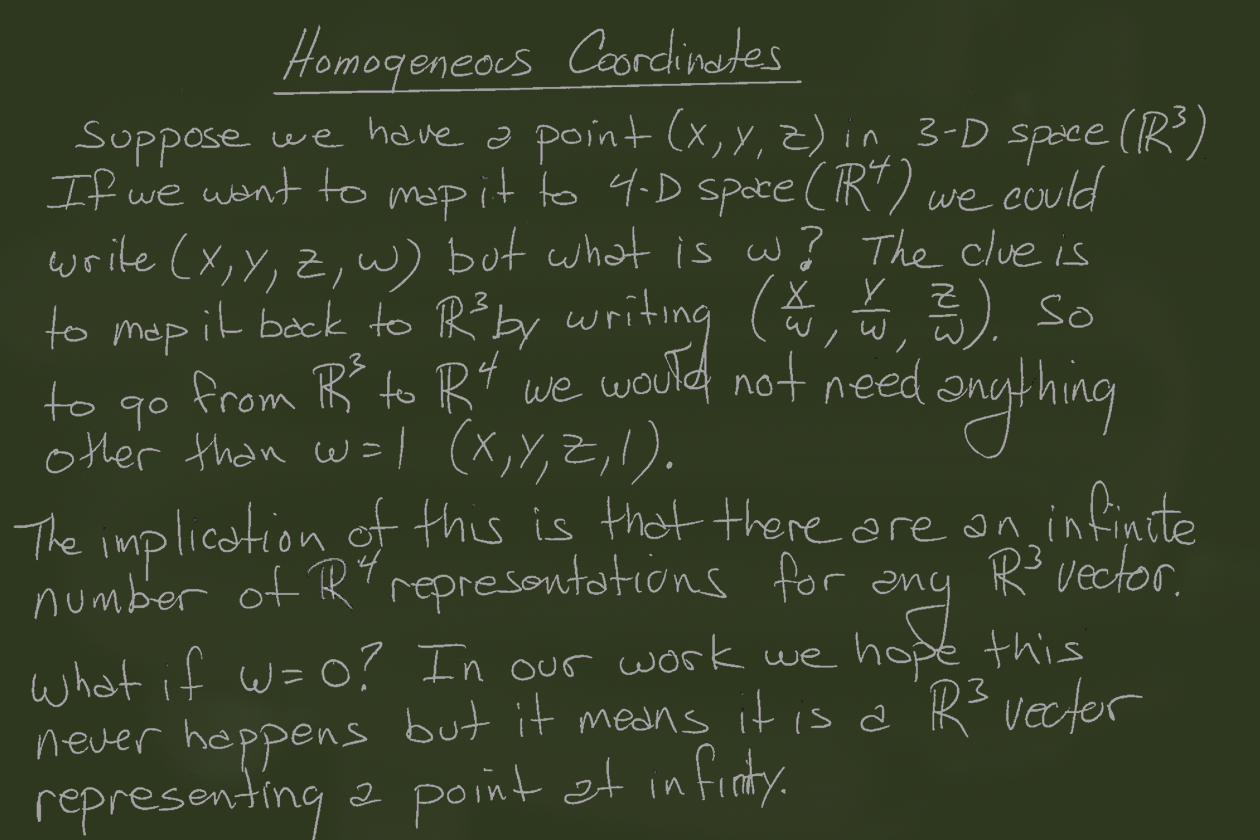 Homogeneous Coordinates
Suppose we have a point (x, y, z) in 3-D space (ℝ³)
If we want to map it to 4-D space (ℝ⁴) we could
write (x, y, z, w) but what is w? The clue is
to map it back to ℝ³ by writing (x/w, y/w, z/w). So
to go from ℝ³ to ℝ⁴ we would not need anything
other than w=1 (x, y, z, 1).
The implication of this is that there are an infinite
number of ℝ⁴ representations for any ℝ³ vector.
What if w=0? In our work we hope this
never happens but it means it is a ℝ³ vector
representing a point at infinty.